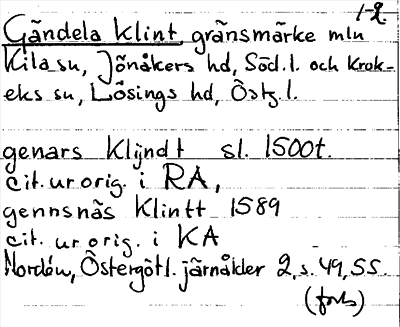 1-2.
Gändela Klint, gränsmärke mln
Kila sn, Jönåkers hd, Söd.l. och Krok-
eks sn, Lösings hd, Östg.l.
genars Klijndt sl. 1500t.
cit. ur orig. i RA,
gennsnäs Klintt 1589
cit. ur orig. i KA
Nordén, Östergötl. järnålder 2, s. 49, 55.
(forts)